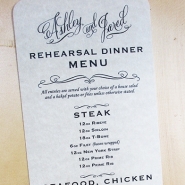 Ashley and Jared
REHEARSAL DINNER
MENU
All entrées are served with your choice of a house salad
and a baked potato or fries unless otherwise noted.
STEAK
12oz Ribeye
12oz Sirloin
18oz T-Bone
6oz Filet (bacon wrapped)
12oz New York Strip
12oz Prime Rib
16oz Prime Rib
SEAFOOD, CHICKEN